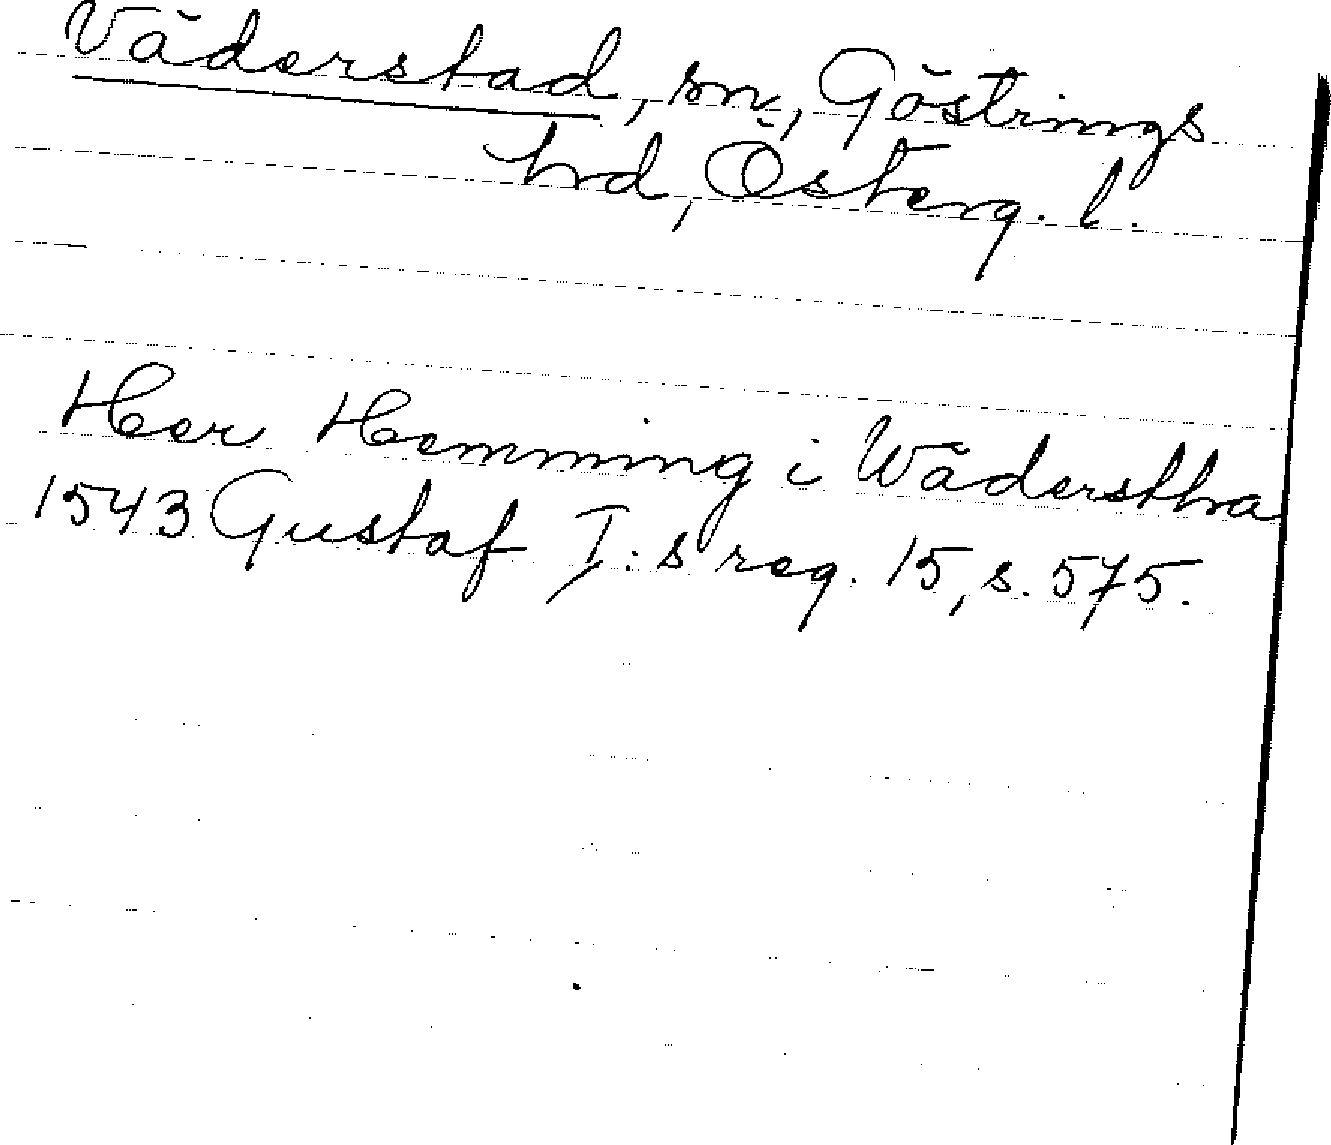 Väderstad, sn, Göstrings
hrd, Österg. l.
Heer Hemming i Wäderstha
1543 Gustaf I:s reg. 15, s. 575.